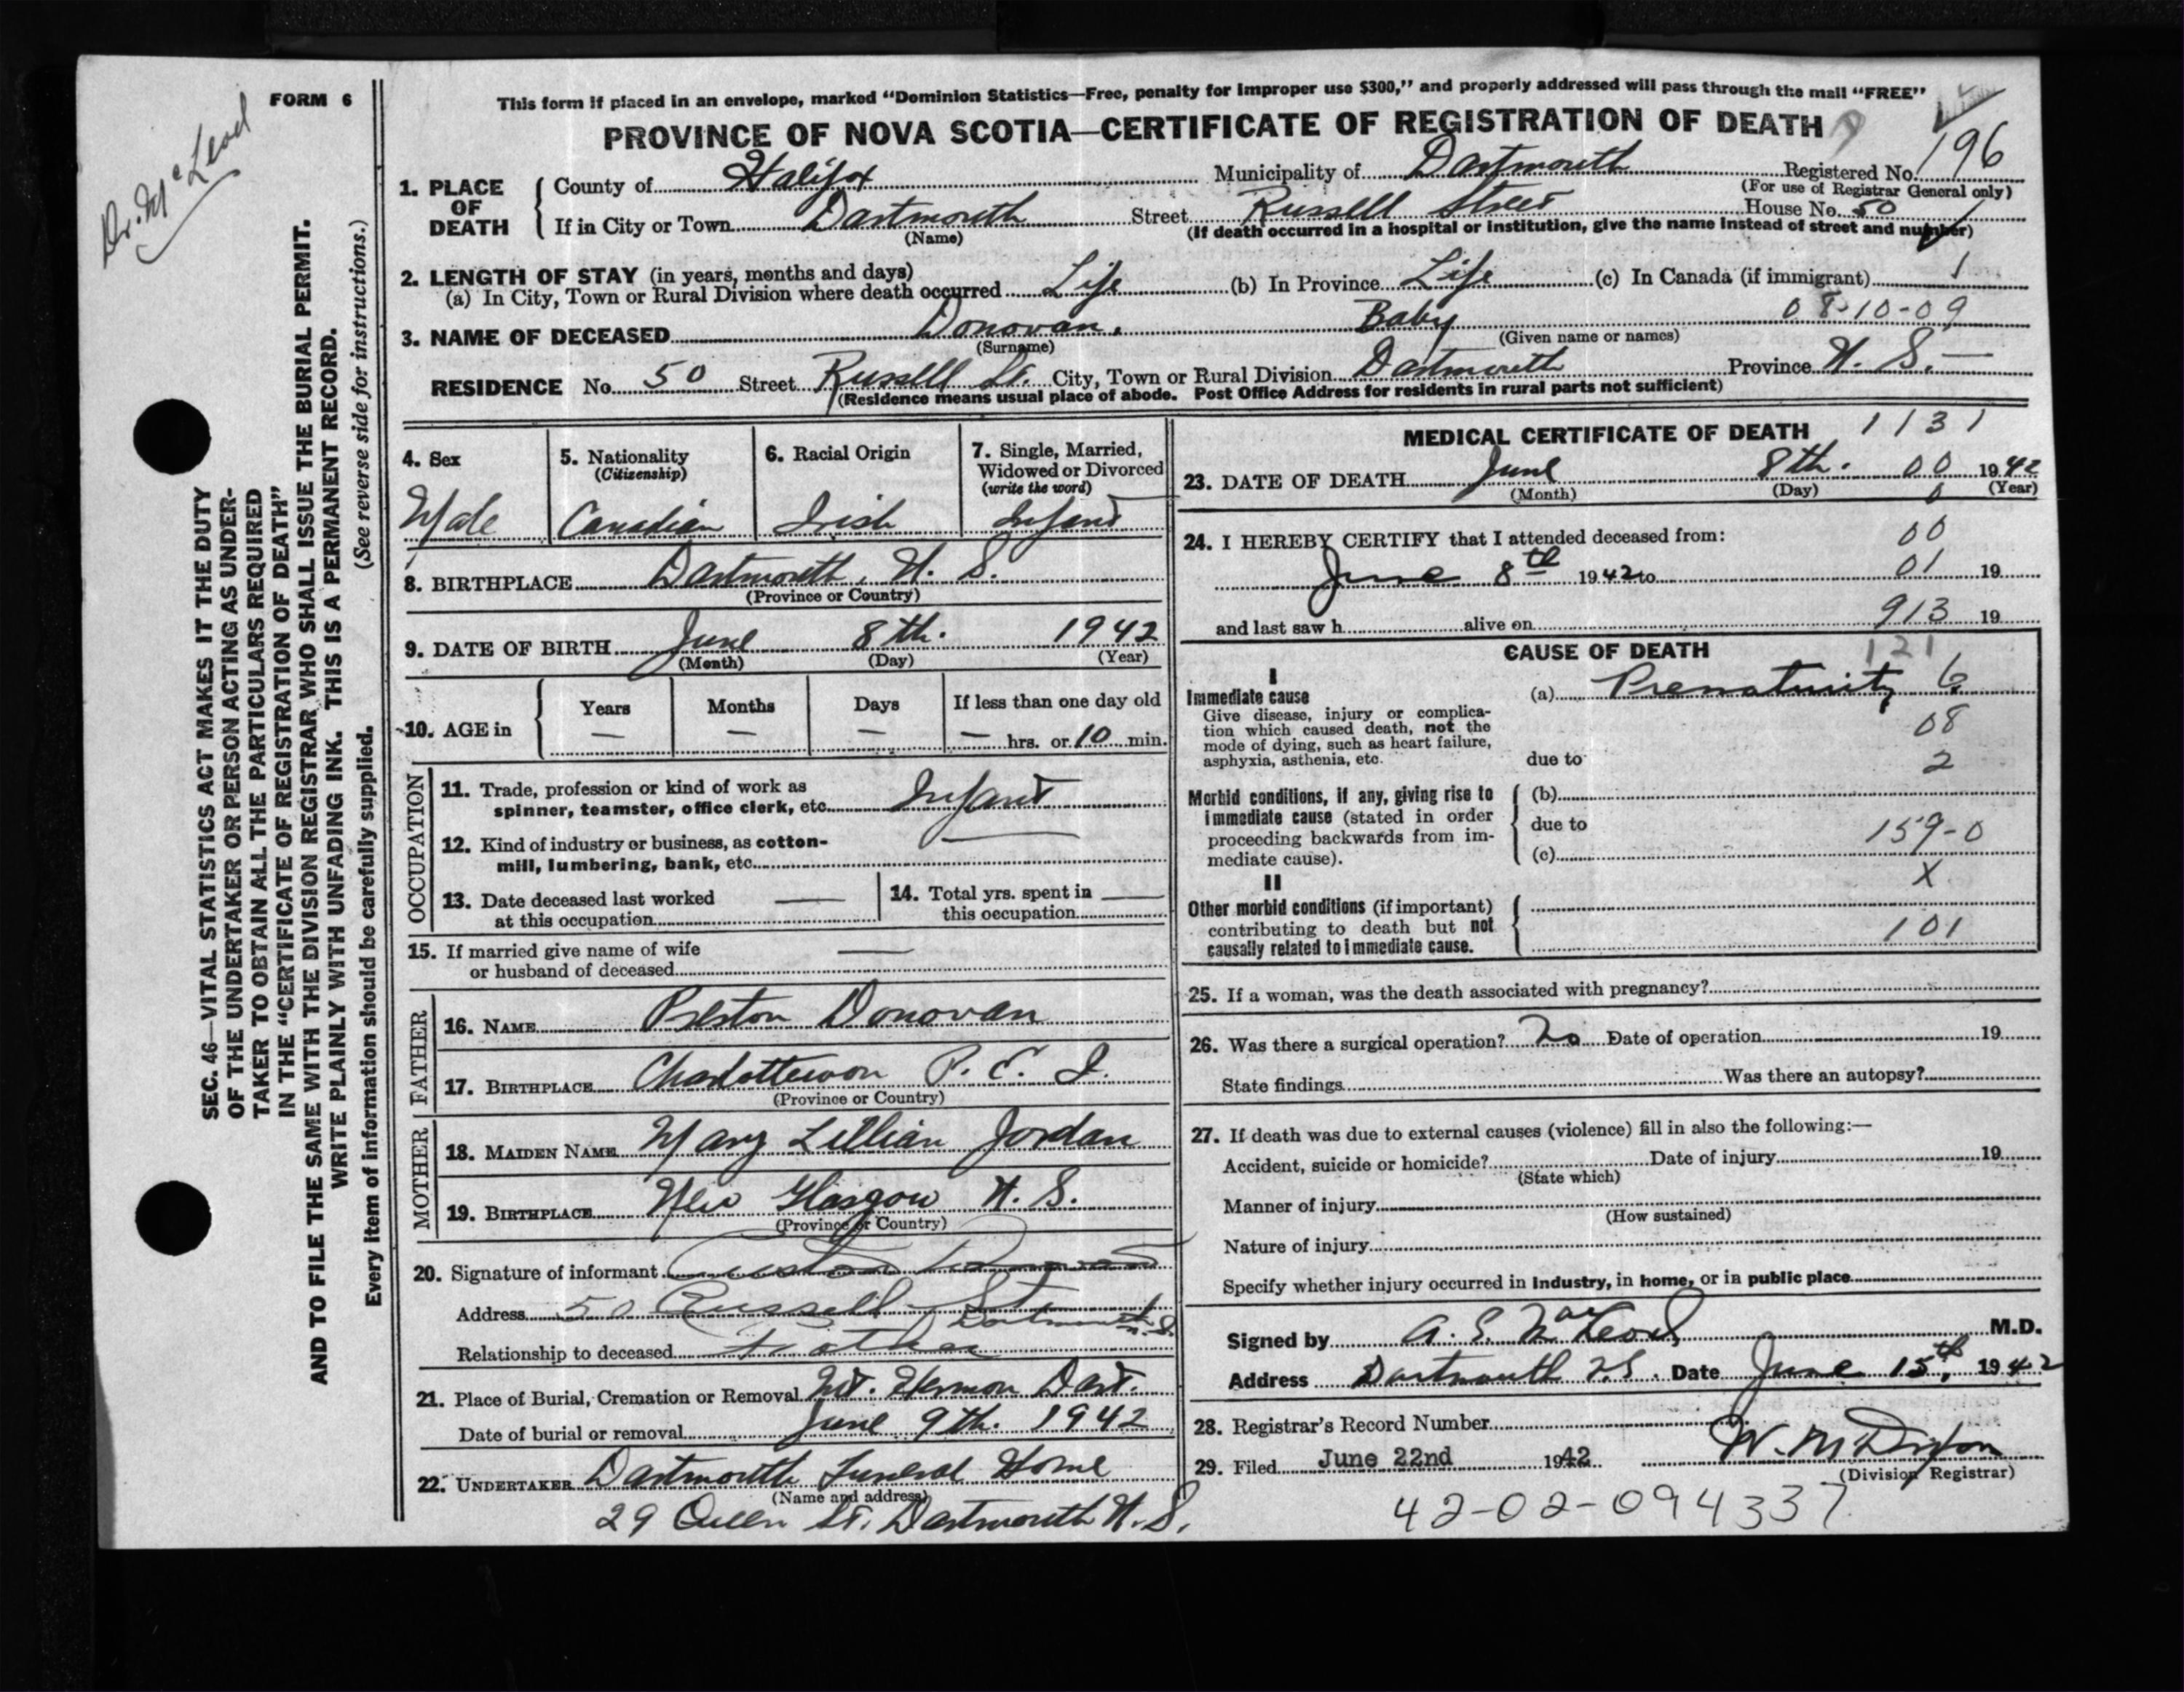 FORM 6
Dr. McLeod
This form if placed in an envelope, marked "Dominion Statistics—Free, penalty for improper use $300," and properly addressed will pass through the mail "FREE"
PROVINCE OF NOVA SCOTIA—CERTIFICATE OF REGISTRATION OF DEATH
Registered No. 196
(For use of Registrar General only)
1. PLACE OF DEATH
County of Halifax Municipality of Dartmouth
If in City or Town Dartmouth Street Russell Street House No. 50
(Name) (If death occurred in a hospital or institution, give the name instead of street and number)
2. LENGTH OF STAY (in years, months and days)
(a) In City, Town or Rural Division where death occurred Life (b) In Province Life (c) In Canada (if immigrant) 1
08-10-09
3. NAME OF DECEASED Donovan, Baby
(Surname) (Given name or names)
RESIDENCE No. 50 Street Russell St. City, Town or Rural Division Dartmouth Province N. S. —
(Residence means usual place of abode. Post Office Address for residents in rural parts not sufficient)
4. Sex
Male
5. Nationality
(Citizenship)
Canadian
6. Racial Origin
Irish
7. Single, Married,
Widowed or Divorced
(write the word)
Infant
8. BIRTHPLACE Dartmouth, N. S.
(Province or Country)
9. DATE OF BIRTH June 8th. 1942
(Month) (Day) (Year)
10. AGE in
Years Months Days If less than one day old
— — — — hrs. or 10 min.
OCCUPATION
11. Trade, profession or kind of work as
spinner, teamster, office clerk, etc. Infant
12. Kind of industry or business, as cotton-
mill, lumbering, bank, etc. —
13. Date deceased last worked —
at this occupation
14. Total yrs. spent in —
this occupation
15. If married give name of wife —
or husband of deceased
FATHER
16. NAME Preston Donovan
17. BIRTHPLACE Charlottetown P. E. I.
(Province or Country)
MOTHER
18. MAIDEN NAME Mary Lillian Jordan
19. BIRTHPLACE New Glasgow N. S.
(Province or Country)
20. Signature of informant Preston Donovan
Address 50 Russell St Dartmouth N.S.
Relationship to deceased Father
21. Place of Burial, Cremation or Removal Mt. Hermon Dart.
Date of burial or removal June 9th. 1942
22. UNDERTAKER Dartmouth Funeral Home
(Name and address)
29 Queen St. Dartmouth N. S.
MEDICAL CERTIFICATE OF DEATH 1131
23. DATE OF DEATH June 8th. 00 1942
(Month) (Day) 0 (Year)
24. I HEREBY CERTIFY that I attended deceased from: 00
June 8th 1942 to 01 19
and last saw h alive on 913 19
CAUSE OF DEATH 121
I
Immediate cause
Give disease, injury or complica-
tion which caused death, not the
mode of dying, such as heart failure,
asphyxia, asthenia, etc.
(a) Prematurity 6
08
due to 2
Morbid conditions, if any, giving rise to
immediate cause (stated in order
proceeding backwards from im-
mediate cause).
(b)
due to 159-0
(c)
X
II
Other morbid conditions (if important)
contributing to death but not
causally related to immediate cause.
101
25. If a woman, was the death associated with pregnancy?
26. Was there a surgical operation? No Date of operation 19
State findings Was there an autopsy?
27. If death was due to external causes (violence) fill in also the following:—
Accident, suicide or homicide? Date of injury 19
(State which)
Manner of injury
(How sustained)
Nature of injury
Specify whether injury occurred in industry, in home, or in public place
Signed by A. S. MacLeod M.D.
Address Dartmouth N.S. Date June 15th, 1942
28. Registrar's Record Number
29. Filed June 22nd 1942
(Division Registrar)
42-02-094337
SEC. 46—VITAL STATISTICS ACT MAKES IT THE DUTY
OF THE UNDERTAKER OR PERSON ACTING AS UNDER-
TAKER TO OBTAIN ALL THE PARTICULARS REQUIRED
IN THE "CERTIFICATE OF REGISTRATION OF DEATH"
AND TO FILE THE SAME WITH THE DIVISION REGISTRAR WHO SHALL ISSUE THE BURIAL PERMIT.
WRITE PLAINLY WITH UNFADING INK. THIS IS A PERMANENT RECORD.
(See reverse side for instructions.)
Every item of information should be carefully supplied.